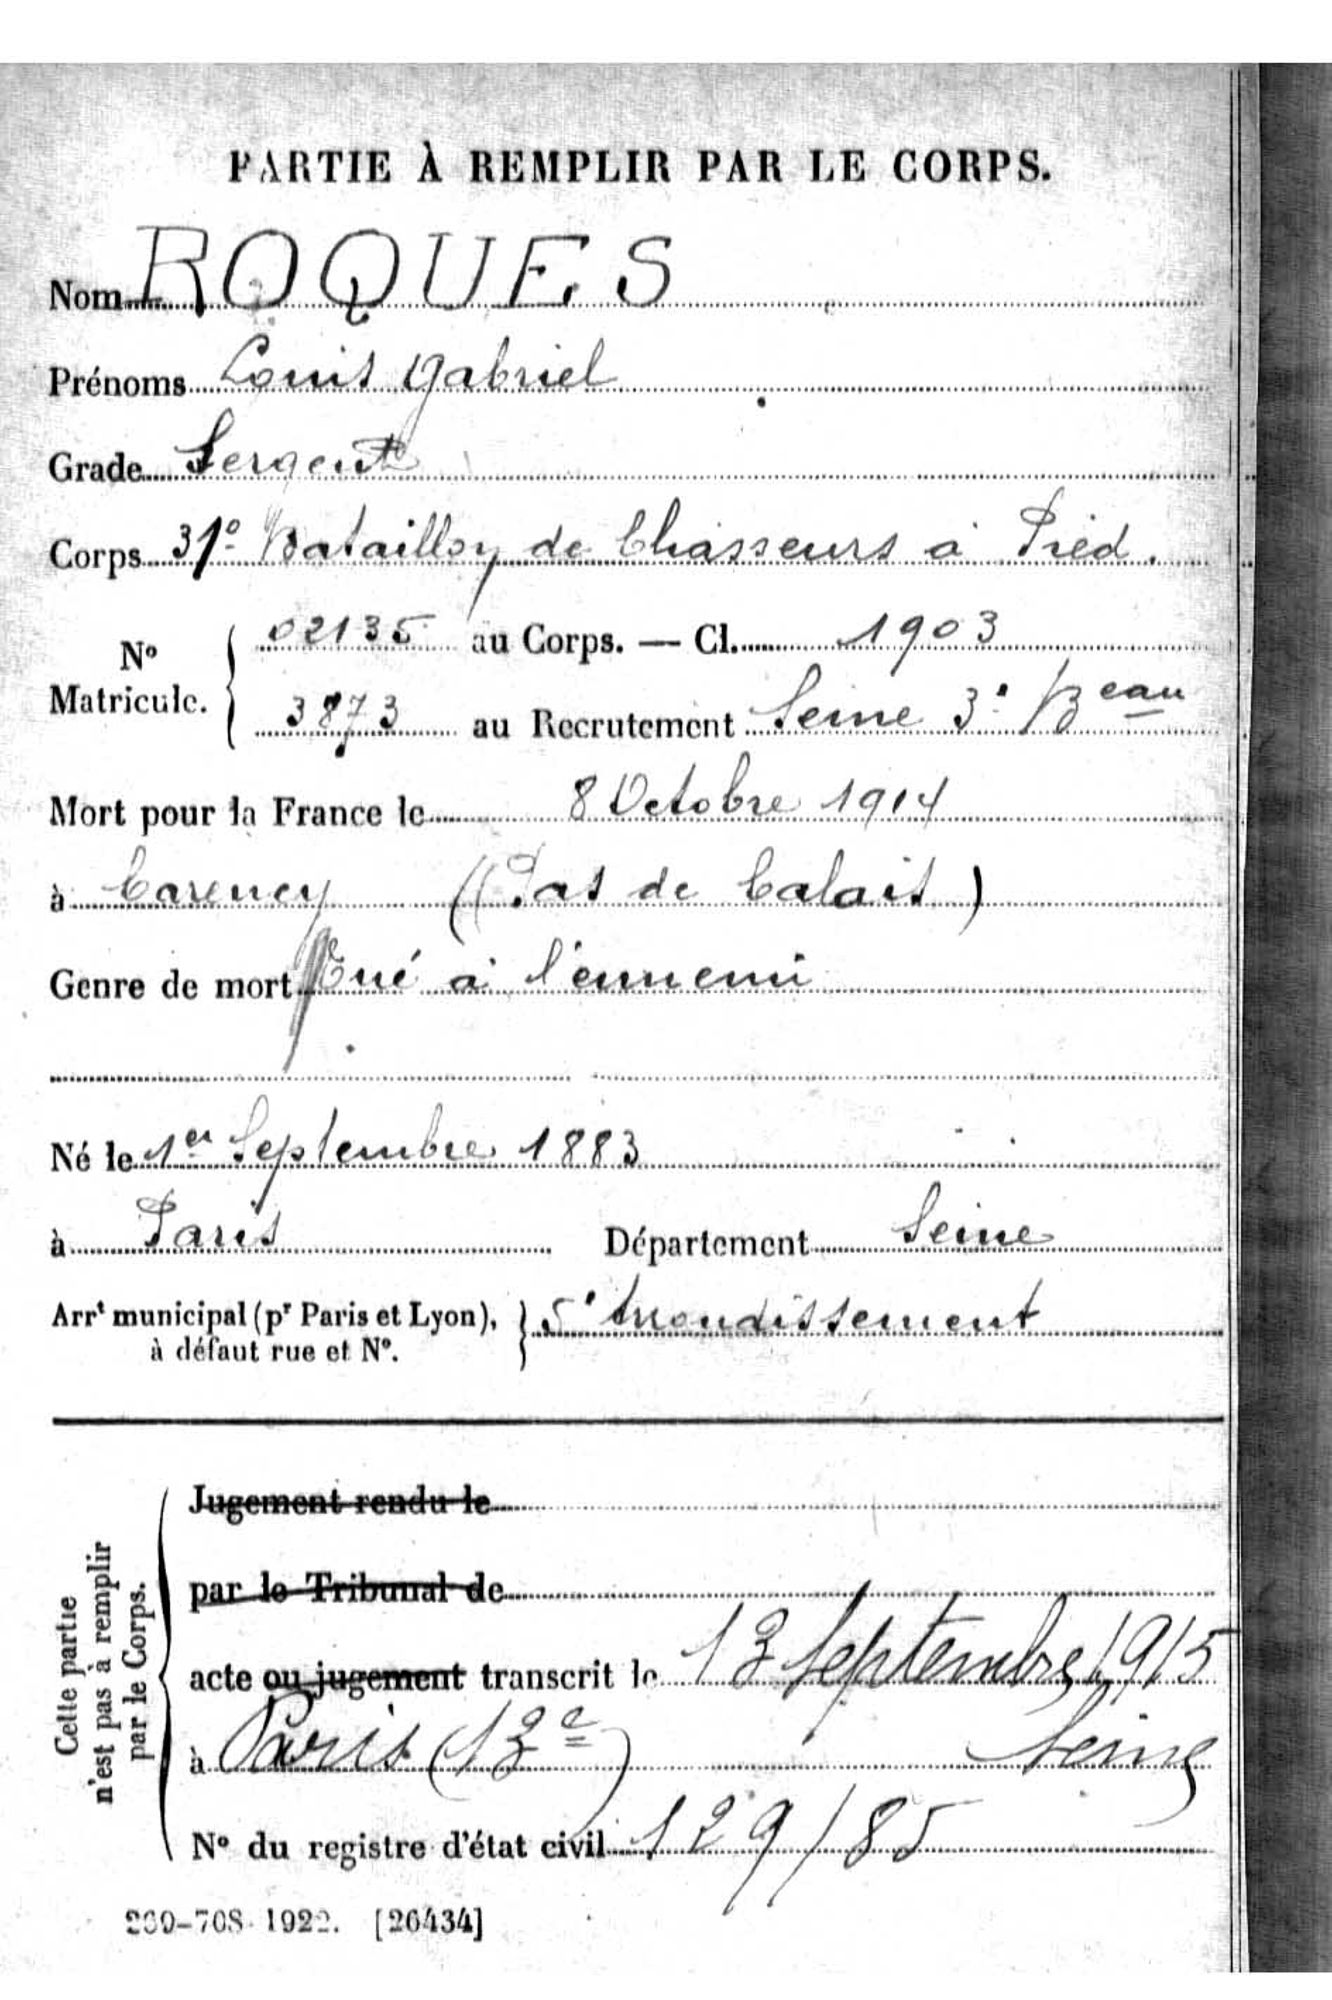 PARTIE À REMPLIR PAR LE CORPS.
Nom ROQUES
Prénoms Louis Gabriel
Grade Sergent
Corps 31e Bataillon de Chasseurs à Pied.
No Matricule. { 02135 au Corps. — Cl. 1903
3873 au Recrutement Seine 3e Beau
Mort pour la France le 8 Octobre 1914
à Carency (Pas de Calais)
Genre de mort Tué à l'ennemi
Né le 1er Septembre 1883
à Paris Département Seine
Arrt municipal (pr Paris et Lyon), à défaut rue et No. } 5e Arrondissement
Cette partie n'est pas à remplir par le Corps.
Jugement rendu le
par le Tribunal de
acte ou jugement transcrit le 13 Septembre 1915
à Paris (13e) Seine
No du registre d'état civil 129/85
[26434]